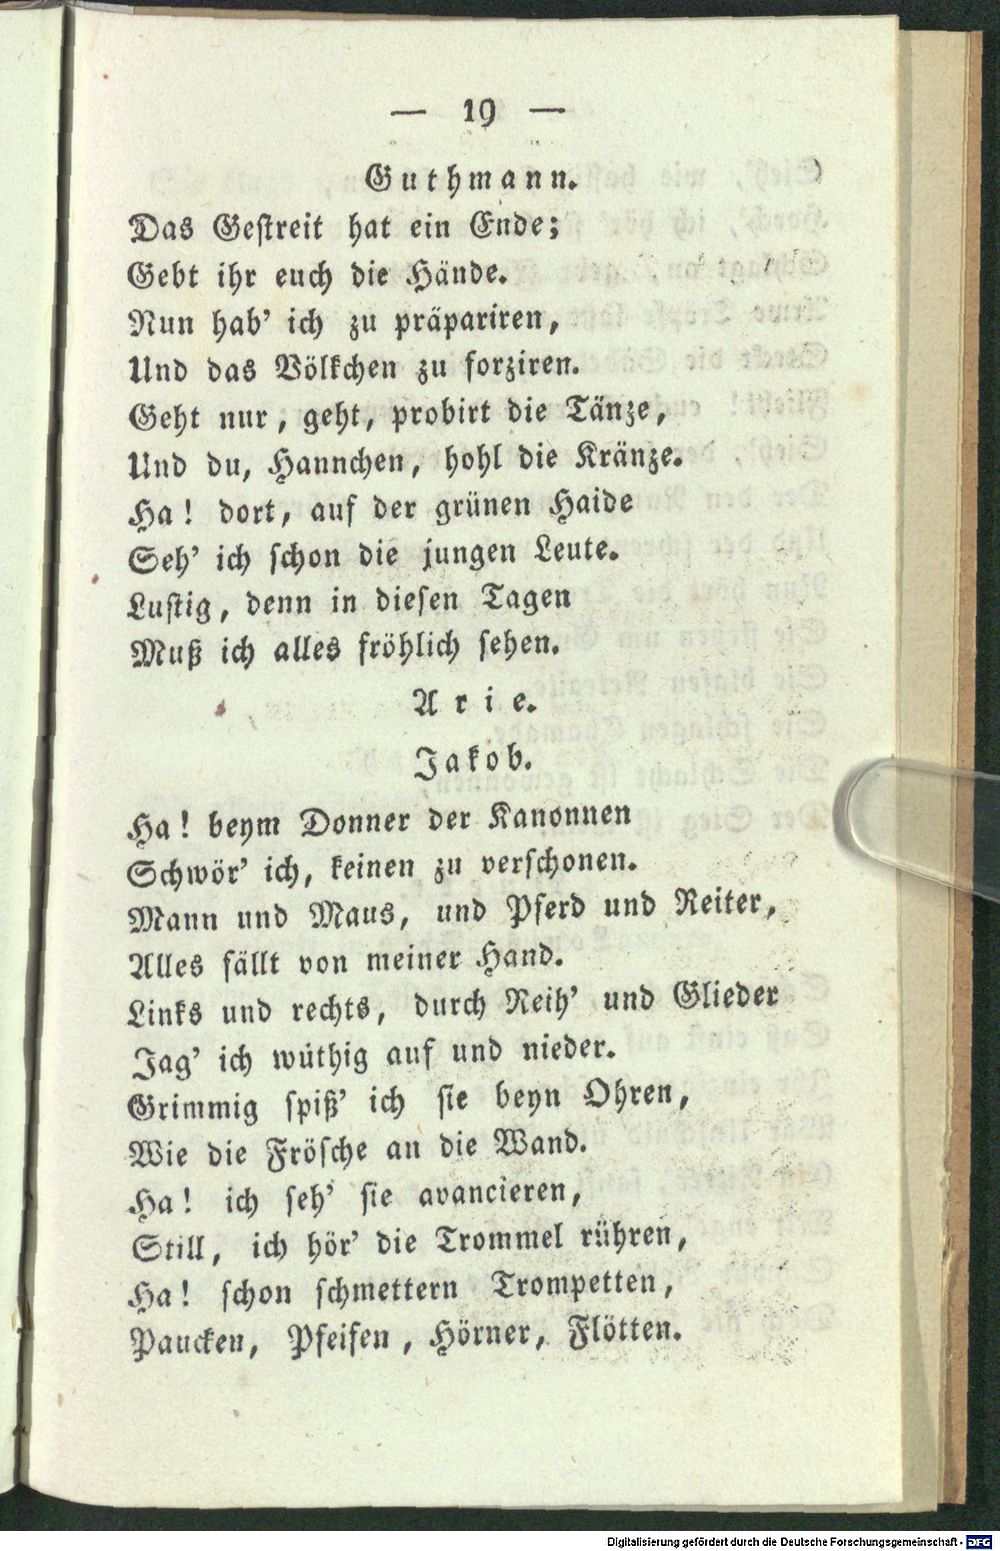 — 19 —
Guthmann.
Das Gestreit hat ein Ende;
Gebt ihr euch die Hände.
Nun hab' ich zu präpariren,
Und das Völkchen zu forziren.
Geht nur, geht, probirt die Tänze,
Und du, Hannchen, hohl die Kränze.
Ha! dort, auf der grünen Haide
Seh' ich schon die jungen Leute.
Lustig, denn in diesen Tagen
Muß ich alles fröhlich sehen.
Arie.
Jakob.
Ha! beym Donner der Kanonnen
Schwör' ich, keinen zu verschonen.
Mann und Maus, und Pferd und Reiter,
Alles fällt von meiner Hand.
Links und rechts, durch Reih' und Glieder
Jag' ich wüthig auf und nieder.
Grimmig spiß' ich sie beyn Ohren,
Wie die Frösche an die Wand.
Ha! ich seh' sie avancieren,
Still, ich hör' die Trommel rühren,
Ha! schon schmettern Trompetten,
Paucken, Pfeifen, Hörner, Flötten.
Digitalisierung gefördert durch die Deutsche Forschungsgemeinschaft - DFG